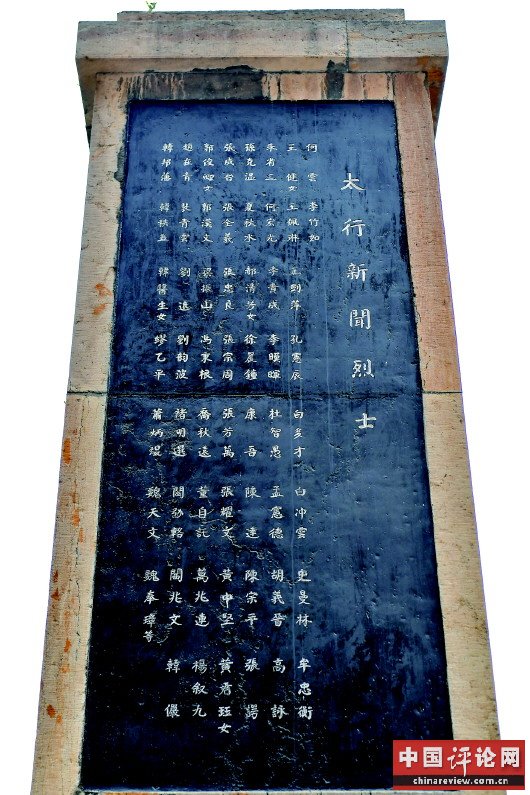 太行新聞烈士
何雲 李竹如 孔憲辰 白多才 白冲雲 史曼林 牟忠衡
王健女 王佩琳 王則萍 李暖暉 杜智愚 孟憲德 胡義晉 高詠
李省三 何宏光 李貴成 徐晨鐘 康吾 陳達 陳宗平 張愕
孫克溫 夏秋水 郝清芳女 張宗周 張芳萬 張耀文 黃中堅 黃君珏女
張成台 張全義 張忠良 馮東根 喬秋遠 董自託 萬兆連 楊叙九
郭俊卿女 郭漢文 梁振山 劉韵波 褚明選 閻兆文 韓儼
趙在青 裴青雲 劉遠 繆乙平 蕭炳焜 魏天文 魏奉璋
韓邦藩 韓秩五 韓醫生女
中国评论网
chinareview.com.cn